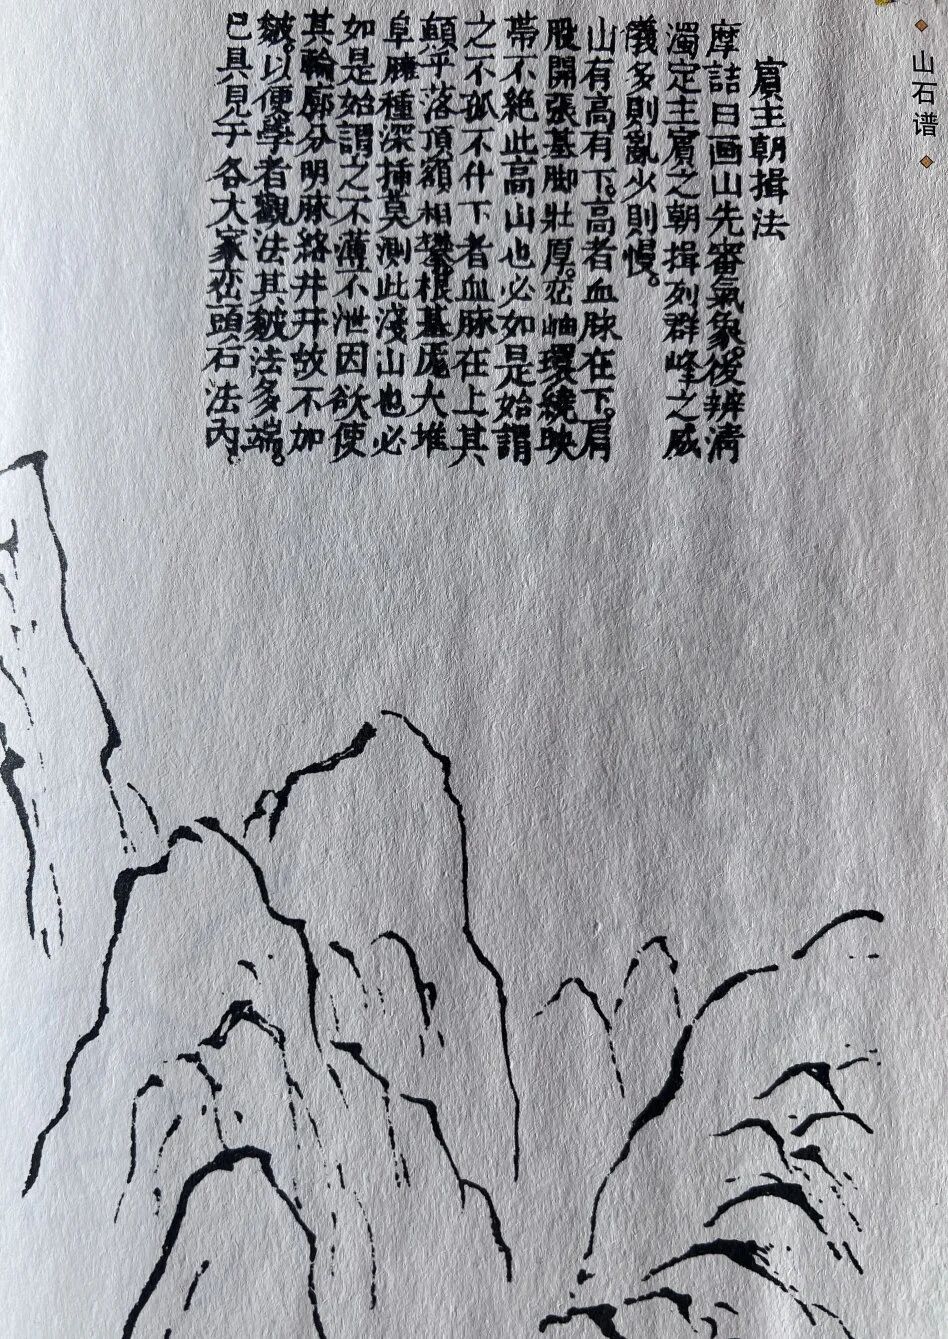 山石谱
賓主朝揖法
摩詰曰画山先審氣象。後辨清
濁定主賓之朝揖列群峰之威
儀多則亂少則慢。
山有高有下。高者血脉在下。肩
股開張基脚壯厚。峦岫環繞映
帶不絶此高山也必如是始謂
之不孤不什下者血脉在上其
顛乎落頂額相攀根基厖大堆
阜臃種深揷莫測此淺山也必
如是始謂之不薄不泄因欲使
其輪廓分明脉絡井井故不加
皴。以便學者觀法其皴法多端。
已具見于各大家峦頭石法內。